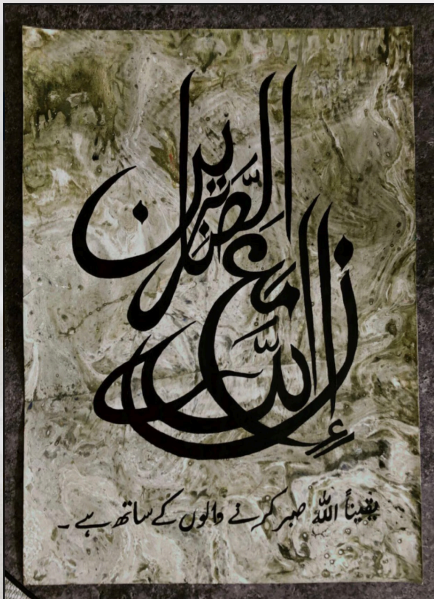 إن الله مع الصّٰبرين
یقیناً اللہ صبر کرنے والوں کے ساتھ ہے ۔